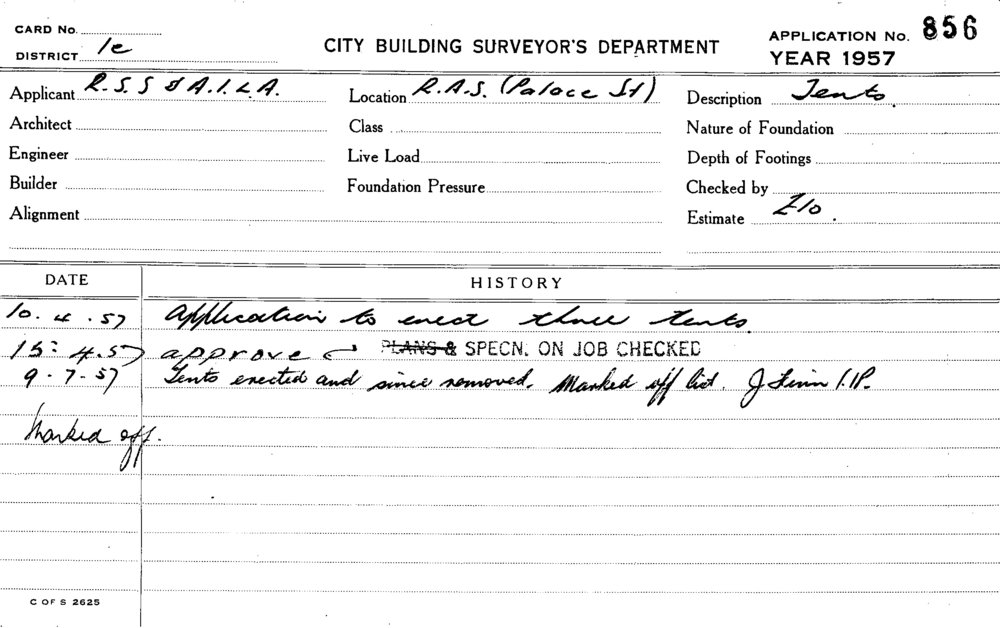 CARD No.
DISTRICT 1e
CITY BUILDING SURVEYOR'S DEPARTMENT
APPLICATION No. 856
YEAR 1957
Applicant R.S.S & A.I.L.A. Location R.A.S. (Palace St) Description Tents.
Architect Class Nature of Foundation
Engineer Live Load Depth of Footings
Builder Foundation Pressure Checked by
Alignment Estimate £10.
DATE HISTORY
10. 4. 57 Application to erect three tents.
15: 4.57 approve PLANS & SPECN. ON JOB CHECKED
9-7-57 Tents erected and since removed. Marked off list. J
Marked off.
C OF S 2625